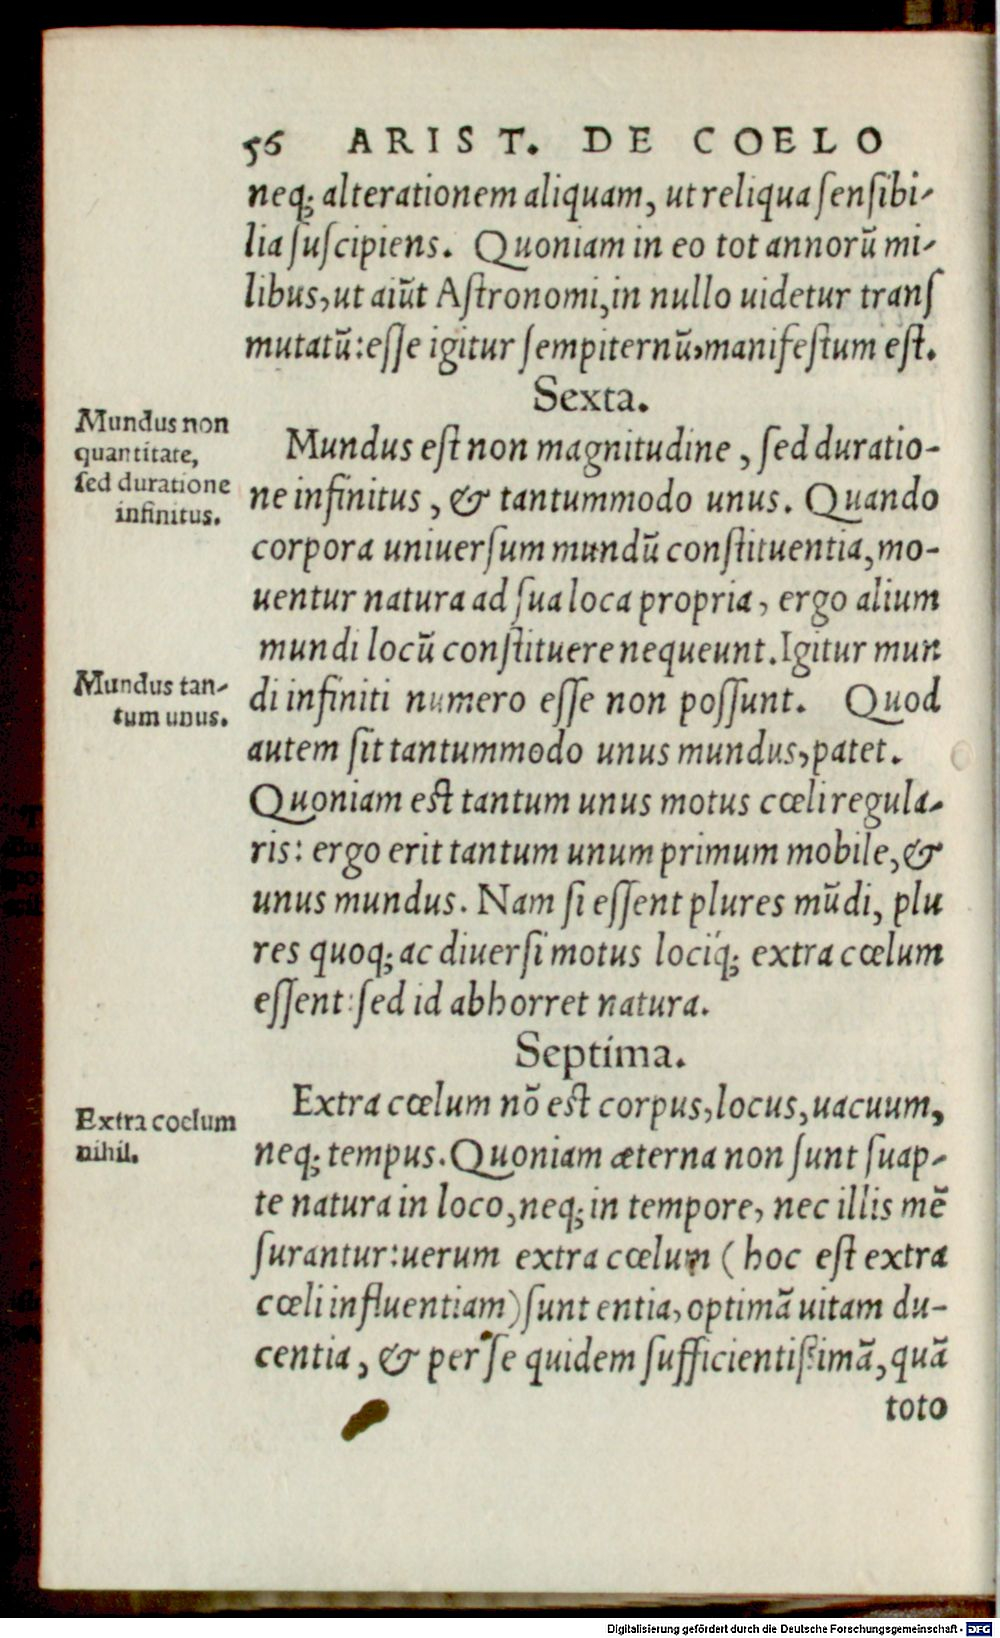 56 ARIST. DE COELO
neq; alterationem aliquam, ut reliqua ſenſibi-
lia ſuſcipiens. Quoniam in eo tot annorū mi-
libus, ut aiūt Aſtronomi, in nullo uidetur tranſ
mutatū: eſſe igitur ſempiternū, manifeſtum eſt.
Sexta.
Mundus non
quantitate,
ſed duratione
infinitus.
Mundus eſt non magnitudine, ſed duratio-
ne infinitus, & tantummodo unus. Quando
corpora uniuerſum mundū conſtituentia, mo-
uentur natura ad ſua loca propria, ergo alium
mundi locū conſtituere nequeunt. Igitur mun
Mundus tan-
tum unus.
di infiniti numero eſſe non poſſunt. Quod
autem ſit tantummodo unus mundus, patet.
Quoniam eſt tantum unus motus cœli regula-
ris: ergo erit tantum unum primum mobile, &
unus mundus. Nam ſi eſſent plures mūdi, plu
res quoq; ac diuerſi motus lociq́; extra cœlum
eſſent: ſed id abhorret natura.
Septima.
Extra coelum
nihil.
Extra cœlum nō eſt corpus, locus, uacuum,
neq; tempus. Quoniam æterna non ſunt ſuap-
te natura in loco, neq; in tempore, nec illis mē
ſurantur: uerum extra cœlum (hoc eſt extra
cœli influentiam) ſunt entia, optimā uitam du-
centia, & per ſe quidem ſufficientiſsimā, quā
toto
Digitalisierung gefördert durch die Deutsche Forschungsgemeinschaft - DFG